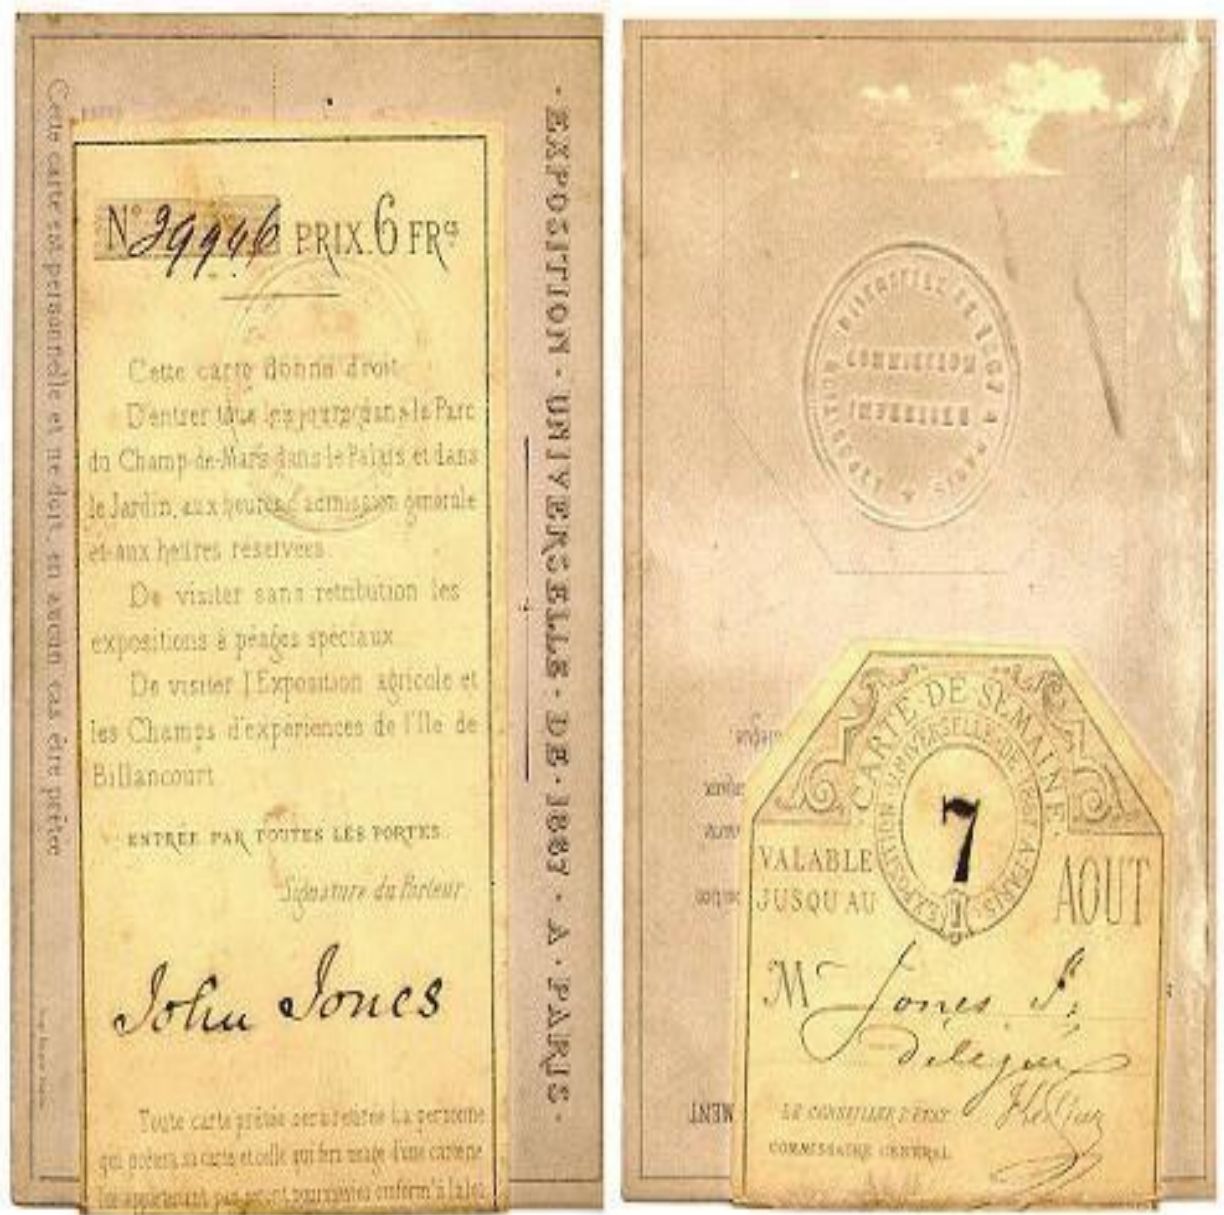 Cette carte est personnelle et ne doit, en aucun cas être prêtée
Nº 39946 PRIX. 6 FRCS
Cette carte donne droit
D'entrer tous les jours dans le Parc
du Champ-de-Mars dans le Palais et dans
le Jardin, aux heures d'admission générale
et aux heures réservées.
De visiter sans retribution les
expositions à péages spéciaux
De visiter l'Exposition agricole et
les Champs d'expériences de l'Ile de
Billancourt
ENTRÉE PAR TOUTES LES PORTES.
Signature du Porteur
John Jones
Toute carte prêtée sera retirée La personne
qui prêtera sa carte et celle qui fera usage d'une carte ne
lui appartenant pas seront poursuivies conform't à la loi
· EXPOSITION · UNIVERSELLE · DE · 1867 · A · PARIS ·
EXPOSITION UNIVERSELLE DE 1867 A PARIS
COMMISSION
CARTE DE SEMAINE.
EXPOSITION UNIVERSELLE DE 1867 A PARIS
7
VALABLE
JUSQU'AU
AOUT
Mr Jones J.
Délégué
LE CONSEILLER D'ETAT
COMMISSAIRE GENERAL
MENT